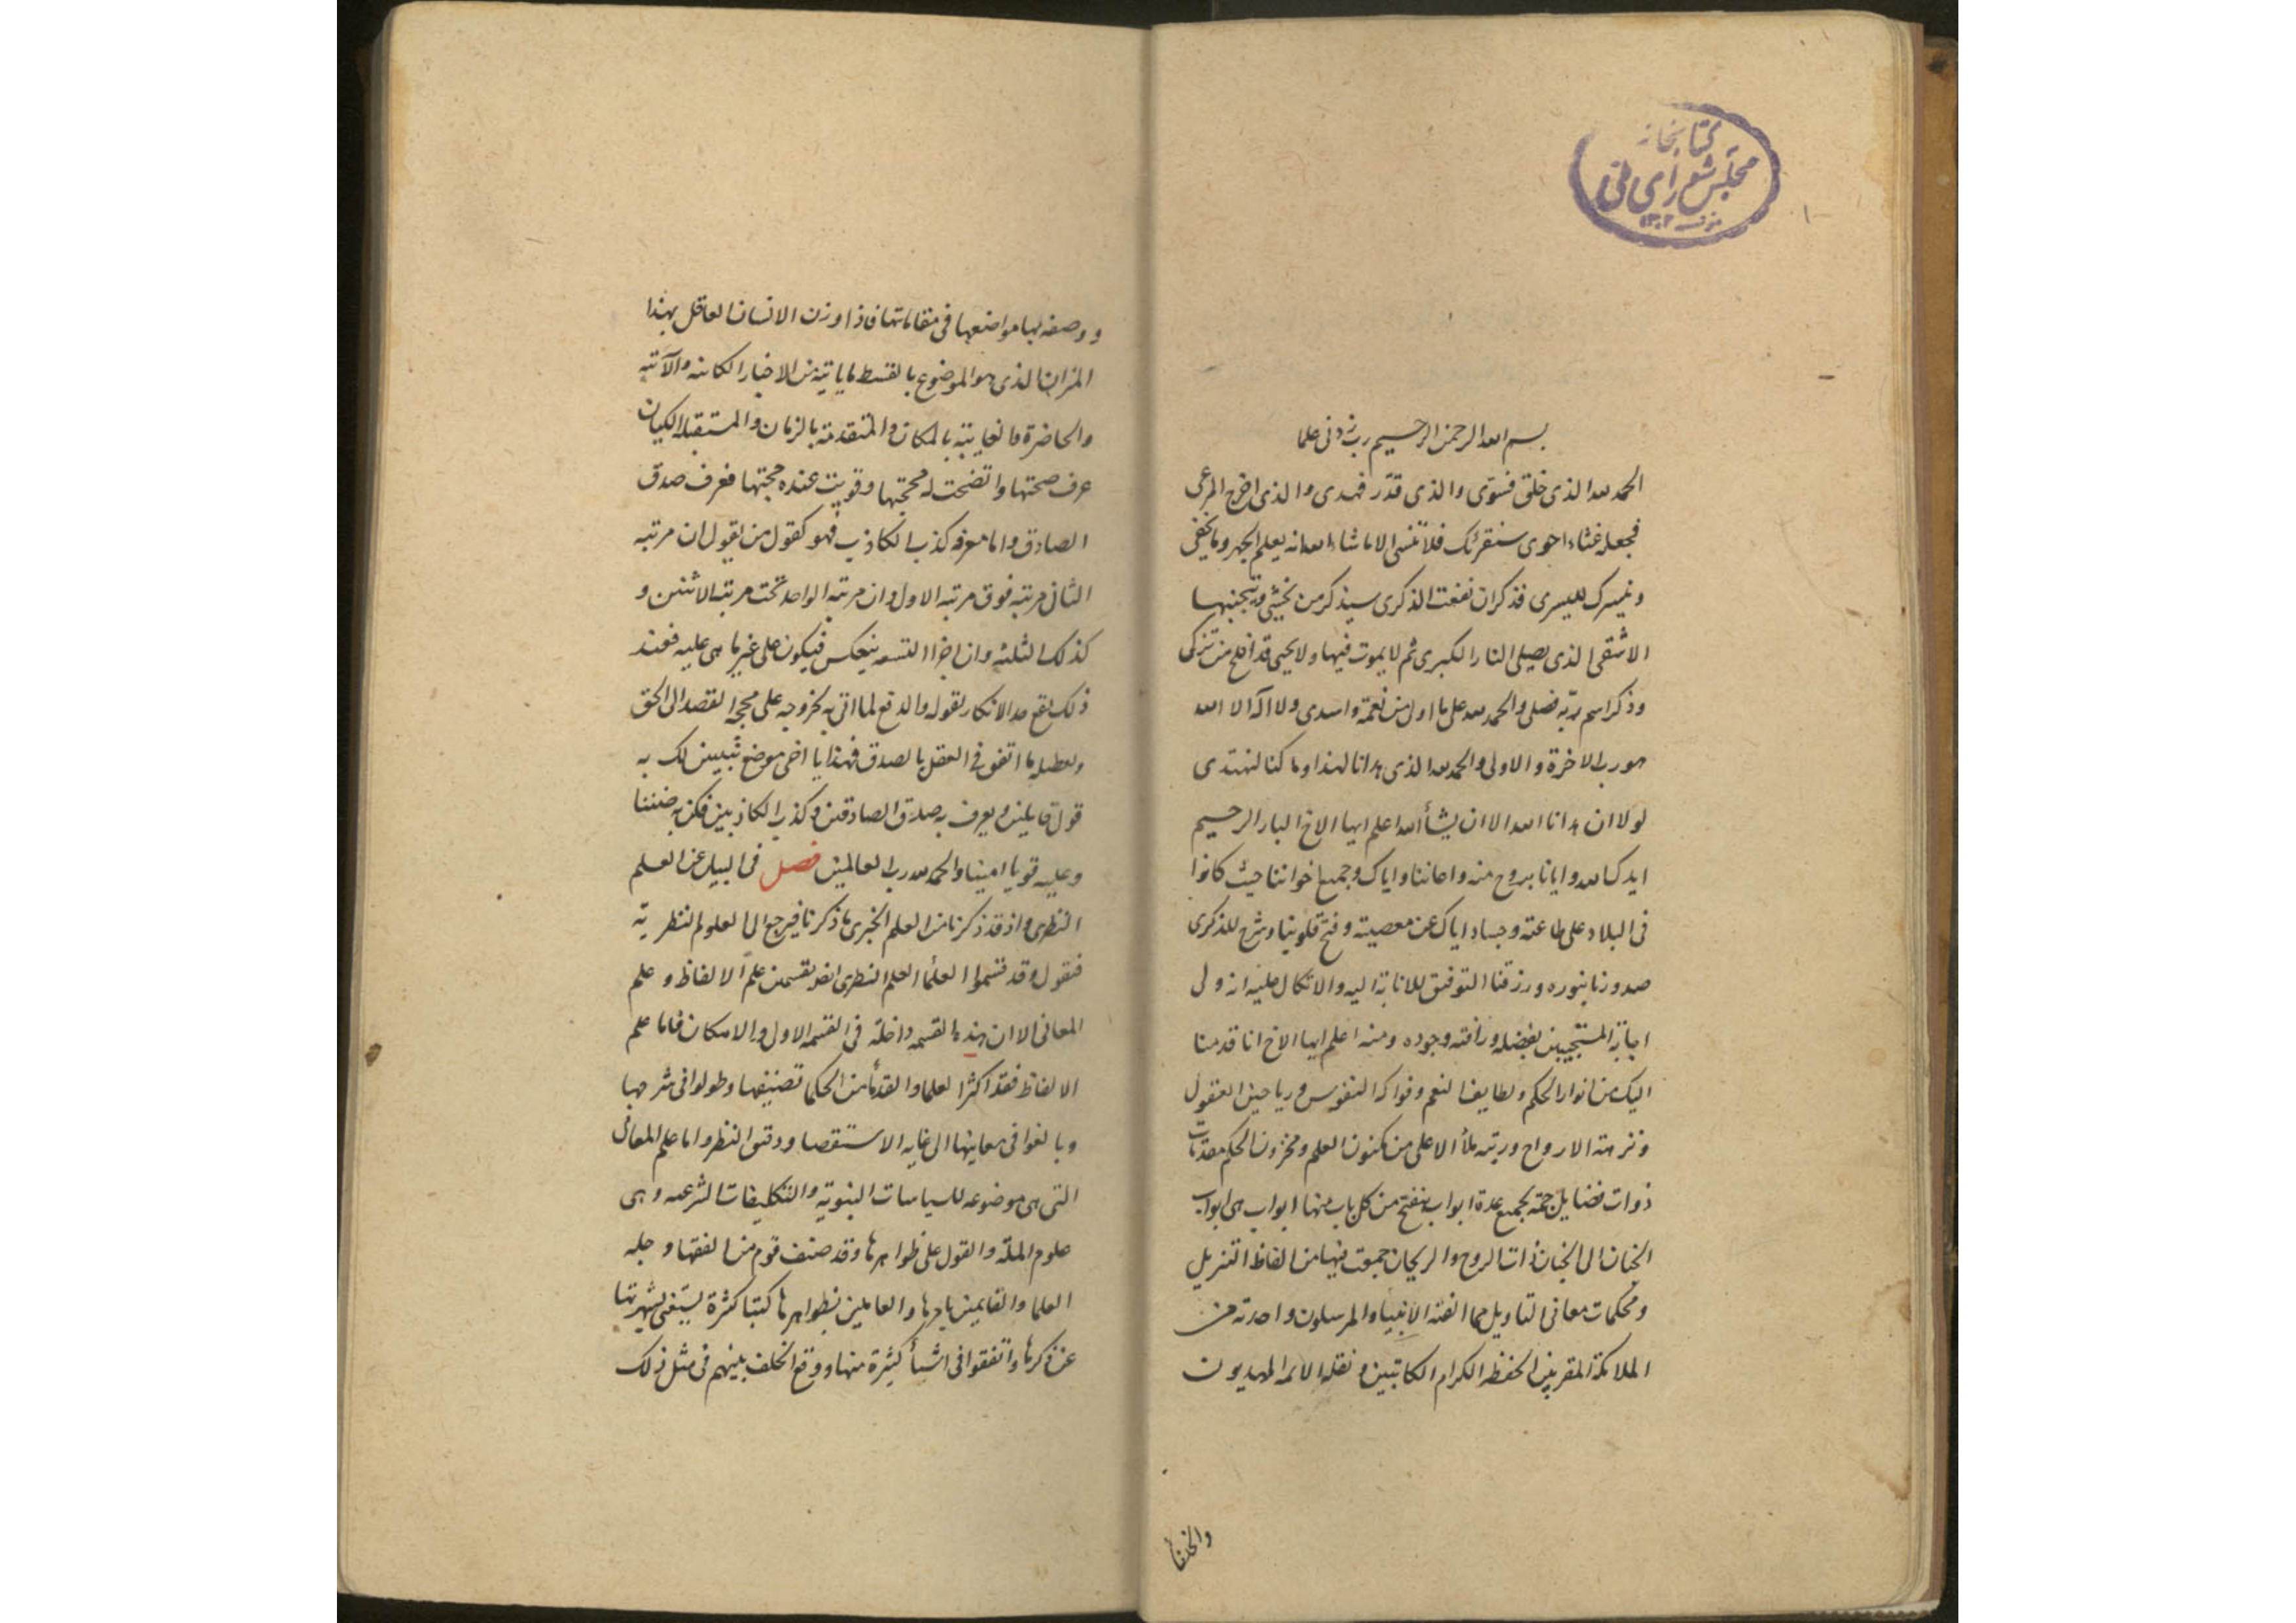 كتابخانه
مجلس شورای ملی
١٣٠٢
بسم الله الرحمن الرحيم رب زدنى علما
الحمد لله الذى خلق فسوّى والذى قدّر فهدى والذى اخرج المرعى
فجعله غثاء احوى سنقرئك فلا تنسى الا ما شاء الله انه يعلم الجهر وما يخفى
ونيسرك لليسرى فذكر ان نفعت الذكرى سيذكر من يخشى ويتجنبها
الاشقى الذى يصلى النار الكبرى ثم لا يموت فيها ولا يحيى قد افلح من تزكى
وذكر اسم ربه فصلى والحمد لله على ما اولى من نعمة واسدى ولا اله الا الله
هو رب الاخرة والاولى والحمد لله الذى هدانا لهذا وما كنا لنهتدى
لولا ان هدانا الله الا ان يشأ الله اعلم ايها الاخ البار الرحيم
ايدك الله وايانا بروح منه واعاننا واياك وجميع اخواننا حيث كانوا
فى البلاد على طاعته و اياك عن معصيته وفتح قلوبنا وشرح للذكرى
صدورنا بنوره ورزقنا التوفيق للانابة اليه والاتكال عليه انه ولى
اجابة المستجيبين بفضله ورافته وجوده ومنه اعلم ايها الاخ انا قدمنا
اليك من انوار الحكم ولطايف النعم وفواكه النفوس ورياحين العقول
ونزهة الارواح ورتبه ملأ الاعلى من مكنون العلم ومخزون الحكم مقدمات
ذوات فضايل جمة بجميع عدة ابواب ينفتح من كل باب منها ابواب هى ابواب
الجنان الى الجنان ذات الروح والريحان جمعت فيها من الفاظ التنزيل
ومحكمات معانى التاويل مما الفته الانبياء والمرسلون واحدته من
الملائكة المقربين الحفظه الكرام الكاتبين ونقله الائمه المهديون
والخلفاء
ووصفه لها مواضعها فى مقاماتها فاذا وزن الانسان العاقل بهذا
الميزان الذى هو الموضوع بالقسط ما ياتيه من الاخبار الكائنه والآتيه
والحاضرة والغايبة بالمكان والمتقدمة بالزمان والمستقبله الكيان
عرف صحتها واتضحت له محجتها وقويت عنده حجتها فعرف صدق
الصادق واما معرفه كذب الكاذب فهو كقول من يقول ان مرتبه
الثانى مرتبه فوق مرتبه الاول وان مرتبه الواحد تحت مرتبه الاثنين و
كذلك الثلثه وان اجزا القسمه ينعكس فيكون على غير ما هى عليه فعند
ذلك يقع حد الانكار لقوله والدفع لما اتى به لخروجه على محجه القصد الى الحق
وتعطيله ما اتفق فى العقل بالصدق فهذا يا اخى موضع يتبين لك به
قول قايلين ويعرف به صدق الصادقين وكذب الكاذبين فكن به ضنينا
وعليه قويا امينا والحمد لله رب العالمين فصل فى البيان عن العلم
النظرى واذ قد ذكرنا من العلم الخبرى ما ذكرنا فيرجع الى العلوم النظرية
فنقول وقد قسموا العلما العلم النظرى ايضا بقسمين علم الالفاظ وعلم
المعانى الا ان هذه القسمه داخلة فى القسمه الاول والامكان فاما علم
الالفاظ فقد اكثر العلما والقدما من الحكما تصنيفها وطولوا فى شرحها
وبالغوا فى معاينها الى غايه الاستقصا ودقق النظر واما علم المعانى
التى هى موضوعه للسياسات النبوية والتكليفات الشرعيه وهى
علوم الملة والقول على ظواهرها وقد صنف قوم من الفقها وجله
العلما والقايمين بامرها والعاملين بظواهرها كتبا كثرة يستغنى بشهرتها
عن ذكرها واتفقوا فى اشيأ كثيرة منها ووقع الخلف بينهم فى مثل ذلك